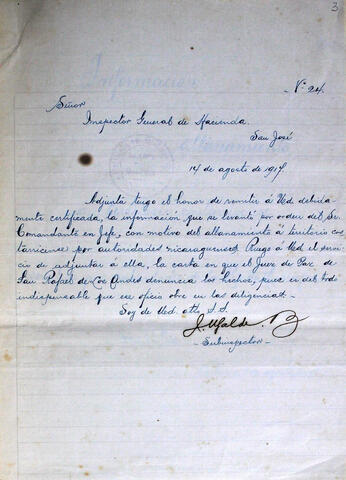 3
Nº 24.
Señor
Inspector General de Hacienda.
San José
14 de agosto de 1917.
Adjunta tengo el honor de remitir á Ud. debida-
mente certificada, la información que se levantó por orden del Sr.
Comandante en Jefe, con motivo del allanamiento á territorio cos-
tarricense por autoridades nicaraguenses. Ruego á Ud. el servi-
cio de adjuntar á ella, la carta en que el Juez de Paz de
San Rafael de denuncia los hechos, pues es del todo
indispensable que ese oficio obre en las diligencias.
Soy de Ud. atto. S. S.
J. Ugalde. B
Subinspector